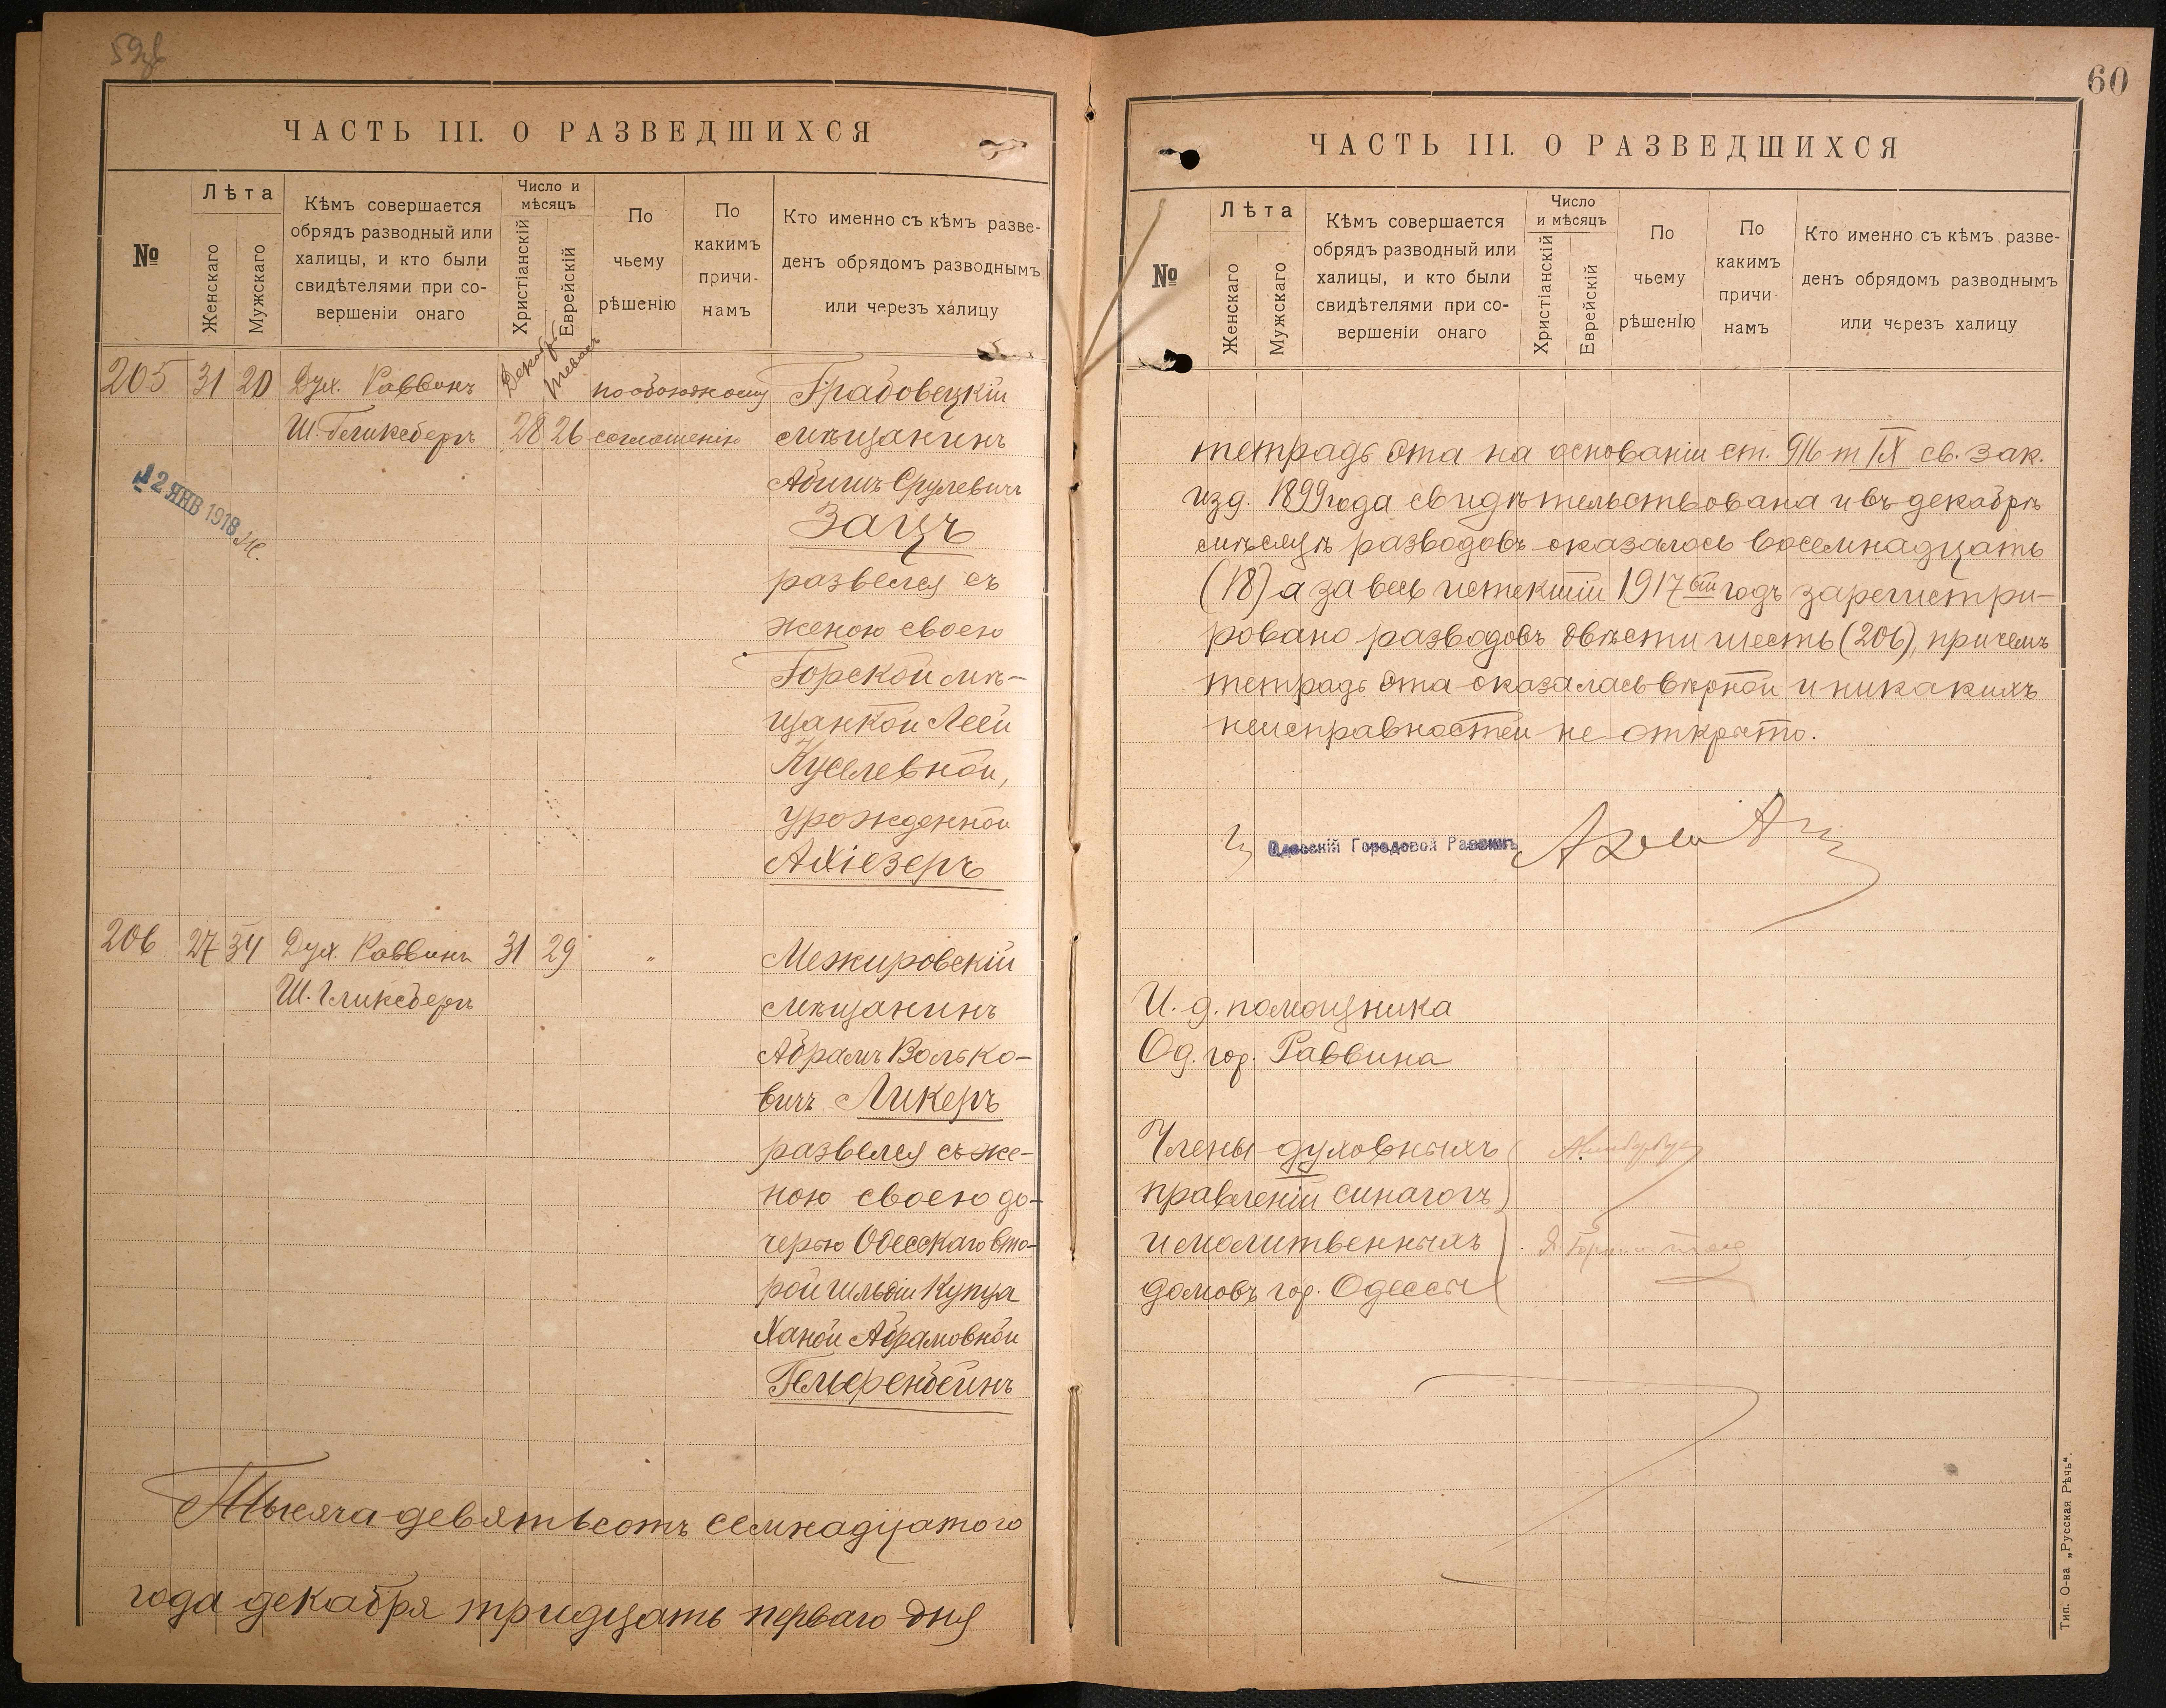 59об
ЧАСТЬ III. О РАЗВЕДШИХСЯ
№
Лѣта
Женскаго
Мужскаго
Кѣмъ совершается
обрядъ разводный или
халицы, и кто были
свидѣтелями при со-
вершеніи онаго
Число и
мѣсяцъ
Христіанскій
Еврейскій
По
чьему
рѣшенію
По
какимъ
причи-
намъ
Кто именно съ кѣмъ разве-
денъ обрядомъ разводнымъ
или черезъ халицу
Декабрь Тевасъ
205 31 20 Дух. Раввинъ по обоюдному Грабовецкій
Ш. Гликсбергъ 28 26 соглашенію мѣщанинъ
Абишъ Срулевичъ
12 ЯНВ 1918
Зацъ
развелся съ
женою своею
Горской мѣ-
щанкой Леей
Куселевной,
урожденной
Ахіезеръ
206 27 34 Дух. Раввинъ 31 29 " Межировскій
Ш. Гликсбергъ мѣщанинъ
Абрамъ Волько-
вичъ Ликеръ
развелся съ же-
ною своею до-
черью Одесскаго вто-
рой гильдіи Купца
Ханой Абрамовной
Гельфенбейнъ
Тысяча девятьсотъ семнадцатого
года декабря тридцать перваго дня
60
ЧАСТЬ III. О РАЗВЕДШИХСЯ
№
Лѣта
Женскаго
Мужскаго
Кѣмъ совершается
обрядъ разводный или
халицы, и кто были
свидѣтелями при со-
вершеніи онаго
Число
и мѣсяцъ
Христіанскій
Еврейскій
По
чьему
рѣшенію
По
какимъ
причи-
намъ
Кто именно съ кѣмъ разве-
денъ обрядомъ разводнымъ
или черезъ халицу
тетрадь эта на основаніи ст. 916 т IX св. зак.
изд. 1899 года свидѣтельствована и въ декабрѣ
мѣсяцѣ разводовъ оказалось восемнадцать
(18) а за весь истекшій 1917 ый годъ зарегистри-
ровано разводовъ двѣсти шесть (206), причемъ
тетрадь эта оказалась вѣрной и никакихъ
неисправностей не открыто.
Одесскій Городовой Раввинъ
И. д. помощника
Од. гор. Раввина
Члены духовныхъ
правленій синагогъ
и молитвенныхъ
домовъ гор. Одессы
Тип. О-ва „Русская Рѣчь".